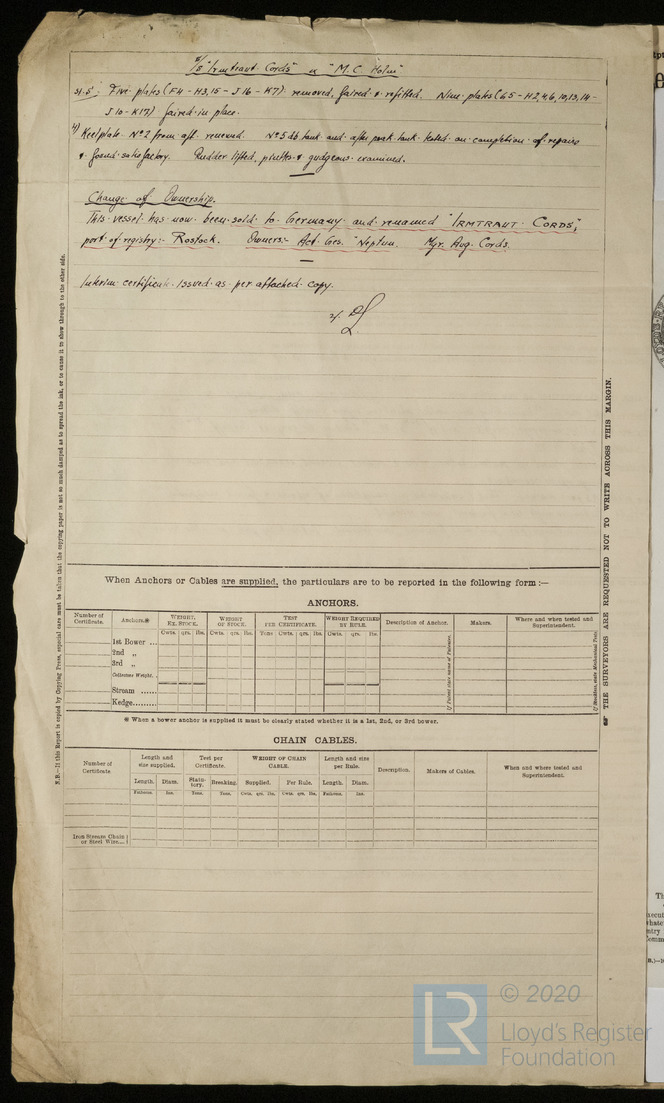 S/S "Irmtraut Cords" ex "M.C. Holm"
St. S: Five plates (F4 - H3, 15 - J16 - K7) removed, faired & refitted. Nine plates (G5 - H2, 4, 6, 10, 13, 14 -
J10 - K17) faired in place.
4) Keelplate No 2 from aft. renewed. No 5 db tank and after peak tank tested on completion of repairs
& found satisfactory. Rudder lifted, pintles & gudgeons examined.
Change of Ownership.
This vessel has now been sold to Germany and renamed "IRMTRAUT CORDS",
port of registry:- Rostock. Owners:- Act. Ges. "Neptun. Mgr. Aug. Cords.
Interim certificate issued as per attached copy.
When Anchors or Cables are supplied, the particulars are to be reported in the following form :—
ANCHORS.
Number of Certificate. Anchors.* WEIGHT, EX. STOCK. WEIGHT OF STOCK. TEST PER CERTIFICATE. WEIGHT REQUIRED BY RULE. Description of Anchor. Makers. Where and when tested and Superintendent.
Cwts. qrs. lbs. Cwts. qrs. lbs. Tons Cwts. qrs. lbs. Cwts. qrs. lbs.
1st Bower ...
2nd "
3rd "
Collective Weight.
Stream ......
Kedge.........
* When a bower anchor is supplied it must be clearly stated whether it is a 1st, 2nd, or 3rd bower.
CHAIN CABLES.
Number of Certificate. Length and size supplied. Test per Certificate. WEIGHT OF CHAIN CABLE. Length and size per Rule. Description. Makers of Cables. When and where tested and Superintendent.
Length. Diam. Statutory. Breaking. Supplied. Per Rule. Length. Diam.
Fathoms. Ins. Tons. Tons. Cwts. qrs. lbs. Cwts. qrs. lbs. Fathoms. Ins.
Iron Stream Chain
or Steel Wire....
N.B.—If this Report is copied by Copying Press, especial care must be taken that the copying paper is not so much damped as to spread the ink, or to cause it to show through to the other side.
THE SURVEYORS ARE REQUESTED NOT TO WRITE ACROSS THIS MARGIN.
LR
© 2020
Lloyd's Register
Foundation